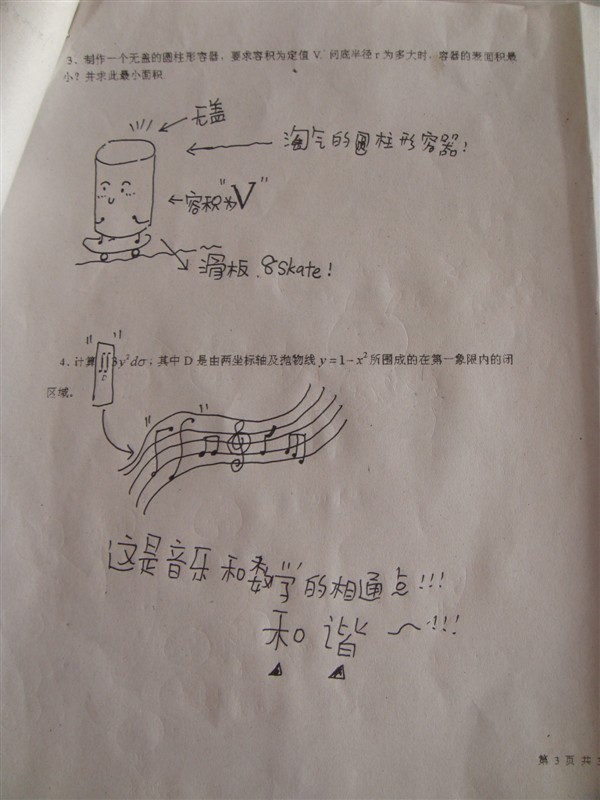 3、制作一个无盖的圆柱形容器，要求容积为定值 V，问底半径 r 为多大时，容器的表面积最
小？并求此最小面积
无盖
淘气的圆柱形容器!
容积为"V"
滑板. &Skate!
4、计算∬3y²dσ，其中 D 是由两坐标轴及抛物线 y=1-x² 所围成的在第一象限内的闭
D
区域。
这是音乐和数学的相通点!!!
和谐~!!!
第 3 页 共